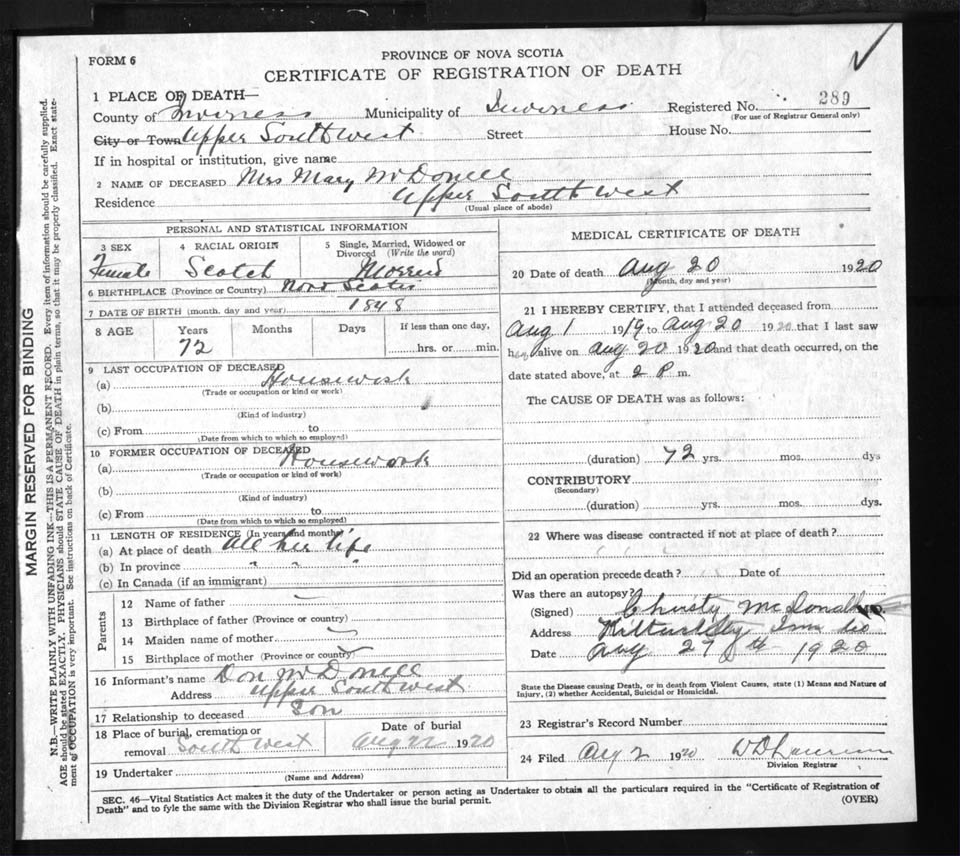 FORM 6
PROVINCE OF NOVA SCOTIA
CERTIFICATE OF REGISTRATION OF DEATH
1 PLACE OF DEATH—
County of Inverness Municipality of Inverness Registered No. 289
(For use of Registrar General only)
City or Town Upper South West Street House No.
If in hospital or institution, give name
2 NAME OF DECEASED Mrs Mary McDonell
Residence Upper South West
(Usual place of abode)
PERSONAL AND STATISTICAL INFORMATION
3 SEX 4 RACIAL ORIGIN 5 Single, Married, Widowed or Divorced (Write the word)
Female Scotch
6 BIRTHPLACE (Province or Country) Nova Scotia
7 DATE OF BIRTH (month, day and year) 1848
8 AGE Years Months Days If less than one day,
72 hrs. or min.
9 LAST OCCUPATION OF DECEASED
(a) Housework
(Trade or occupation or kind or work)
(b)
(Kind of industry)
(c) From to
(Date from which to which so employed)
10 FORMER OCCUPATION OF DECEASED
(a) Housework
(Trade or occupation or kind of work)
(b)
(Kind of industry)
(c) From to
(Date from which to which so employed)
11 LENGTH OF RESIDENCE (In years and months)
(a) At place of death All her life
(b) In province " " "
(c) In Canada (if an immigrant)
Parents
12 Name of father
13 Birthplace of father (Province or country)
14 Maiden name of mother
15 Birthplace of mother (Province or country)
16 Informant's name Don McDonell
Address Upper South West
17 Relationship to deceased Son
18 Place of burial, cremation or Date of burial
removal South West Aug 22 1920
19 Undertaker
(Name and Address)
MEDICAL CERTIFICATE OF DEATH
20 Date of death Aug 20 1920
(Month, day and year)
21 I HEREBY CERTIFY, that I attended deceased from
Aug 1 1919 to Aug 20 1920 that I last saw
her alive on Aug 20 1920 and that death occurred, on the
date stated above, at 2 P. m.
The CAUSE OF DEATH was as follows:
(duration) 72 yrs. mos. dys
CONTRIBUTORY
(Secondary)
(duration) yrs. mos. dys.
22 Where was disease contracted if not at place of death?
Did an operation precede death? Date of
Was there an autopsy?
(Signed) Christy McDonald
Address
Date Aug 27th 1920
State the Disease causing Death, or in death from Violent Causes, state (1) Means and Nature of
Injury, (2) whether Accidental, Suicidal or Homicidal.
23 Registrar's Record Number
24 Filed Aug 2 1920
Division Registrar
SEC. 46—Vital Statistics Act makes it the duty of the Undertaker or person acting as Undertaker to obtain all the particulars required in the "Certificate of Registration of
Death" and to fyle the same with the Division Registrar who shall issue the burial permit. (OVER)
MARGIN RESERVED FOR BINDING
N.B.—WRITE PLAINLY WITH UNFADING INK—THIS IS A PERMANENT RECORD. Every item of information should be carefully supplied.
AGE should be stated EXACTLY. PHYSICIANS should STATE CAUSE OF DEATH in plain terms, so that it may be properly classified. Exact state-
ment of OCCUPATION is very important. See instructions on back of Certificate.